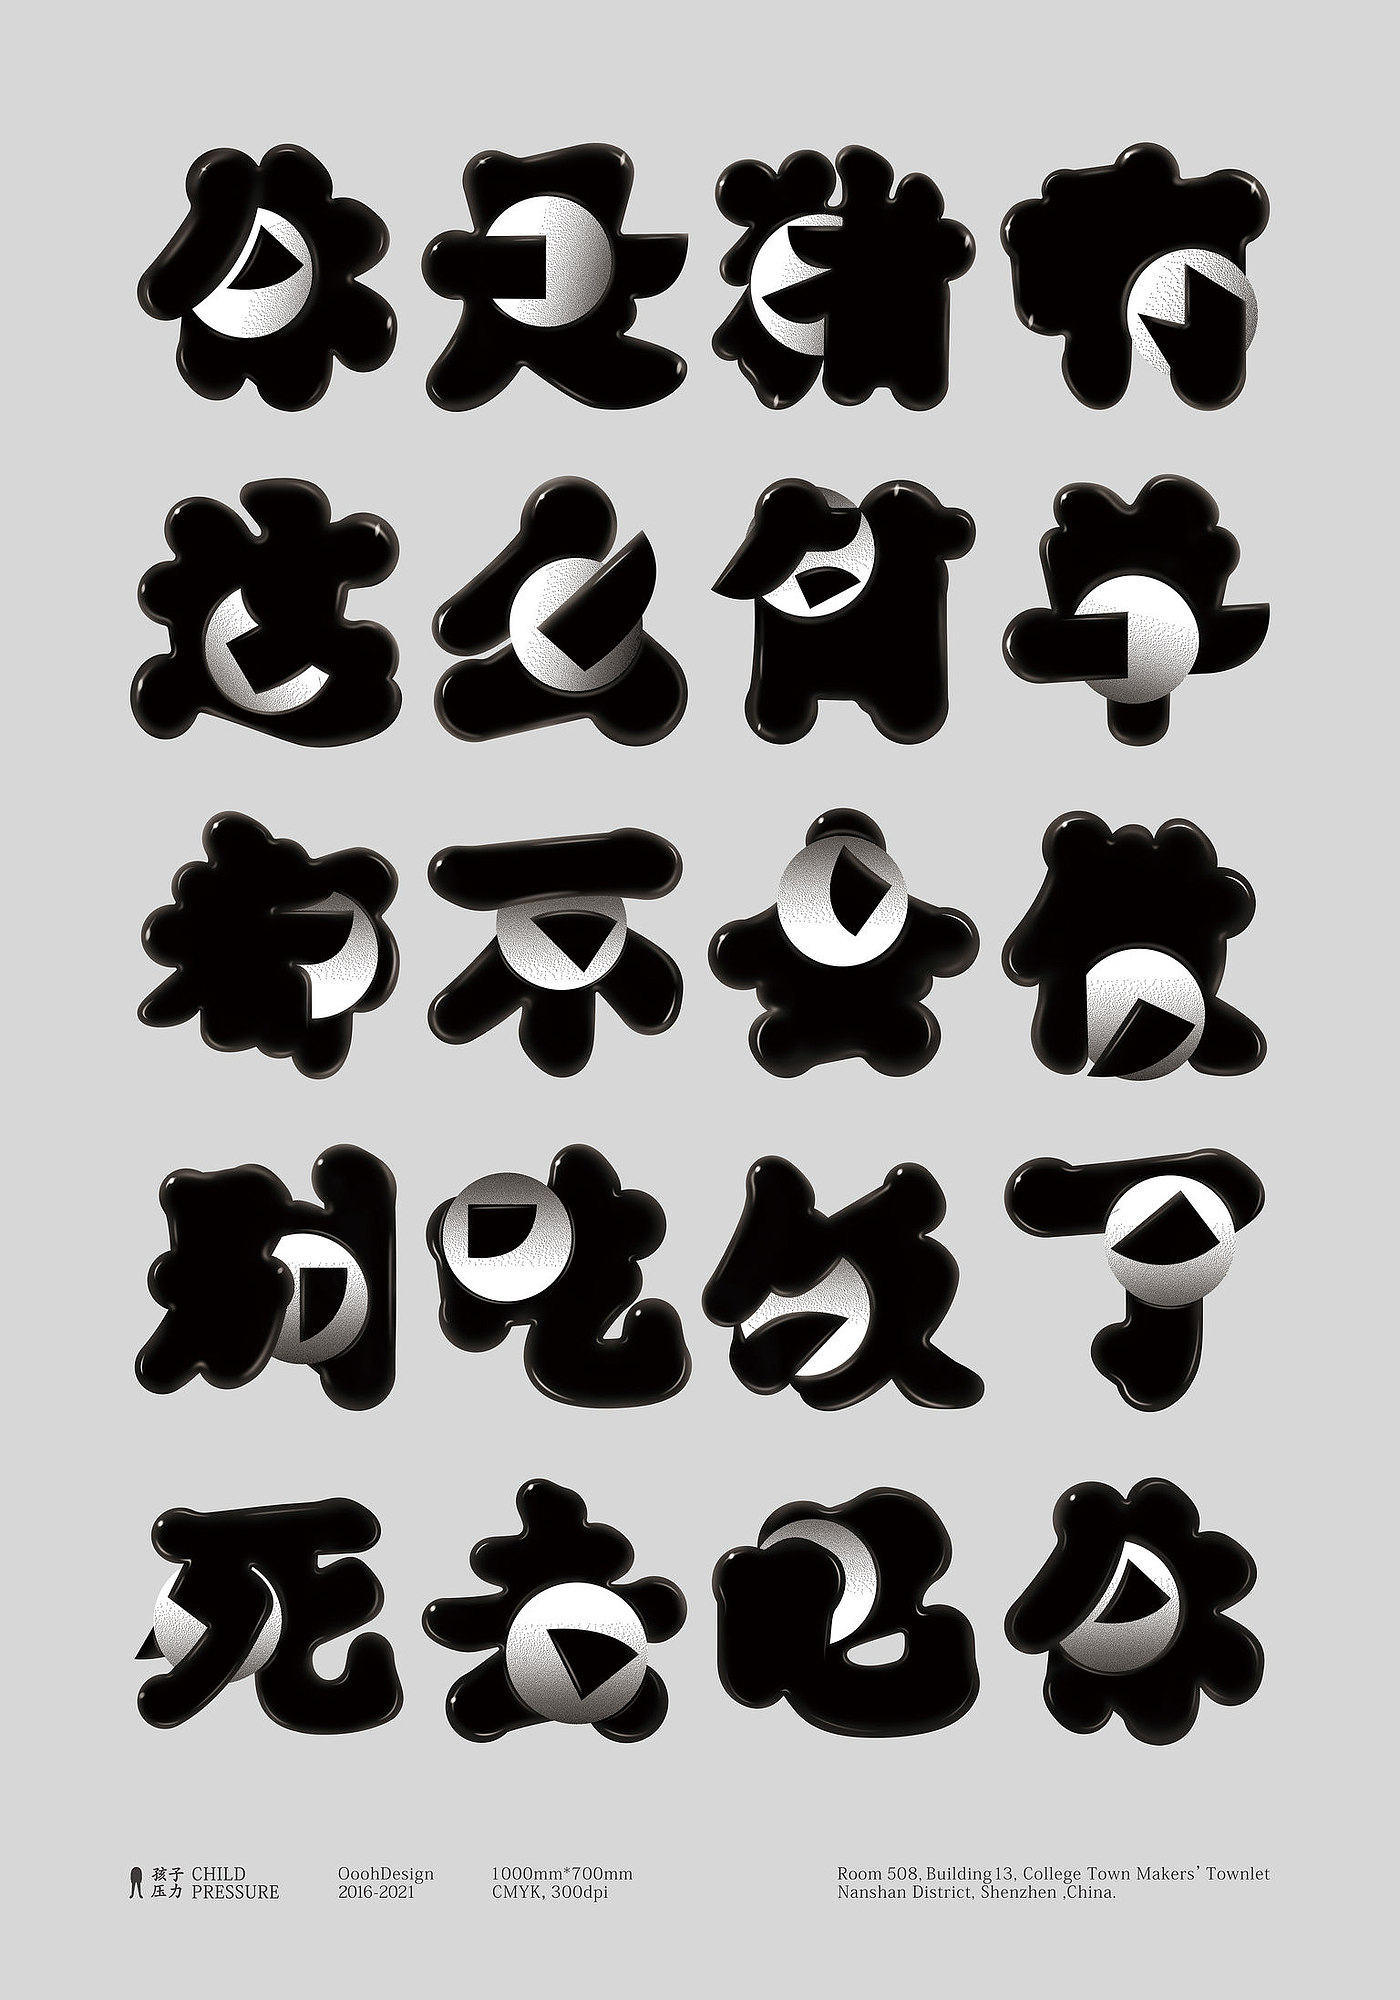 你是猪啊
这么简单
都不会做
别吃饭了
死去吧你
孩子 CHILD
压力 PRESSURE
OoohDesign
2016-2021
1000mm*700mm
CMYK, 300dpi
Room 508, Building13, College Town Makers’ Townlet
Nanshan District, Shenzhen ,China.